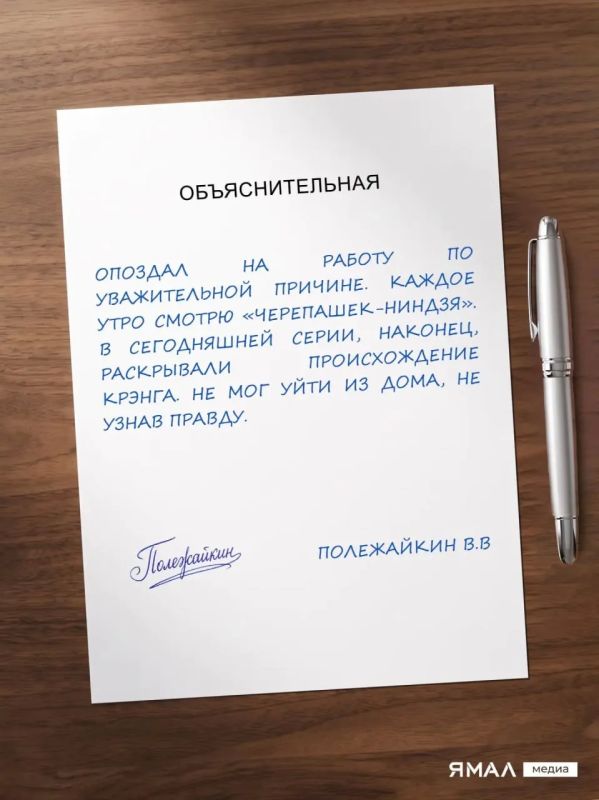 ОБЪЯСНИТЕЛЬНАЯ
ОПОЗДАЛ НА РАБОТУ ПО
УВАЖИТЕЛЬНОЙ ПРИЧИНЕ. КАЖДОЕ
УТРО СМОТРЮ «ЧЕРЕПАШЕК-НИНДЗЯ».
В СЕГОДНЯШНЕЙ СЕРИИ, НАКОНЕЦ,
РАСКРЫВАЛИ ПРОИСХОЖДЕНИЕ
КРЭНГА. НЕ МОГ УЙТИ ИЗ ДОМА, НЕ
УЗНАВ ПРАВДУ.
Полежайкин
ПОЛЕЖАЙКИН В.В
ЯМАЛ медиа